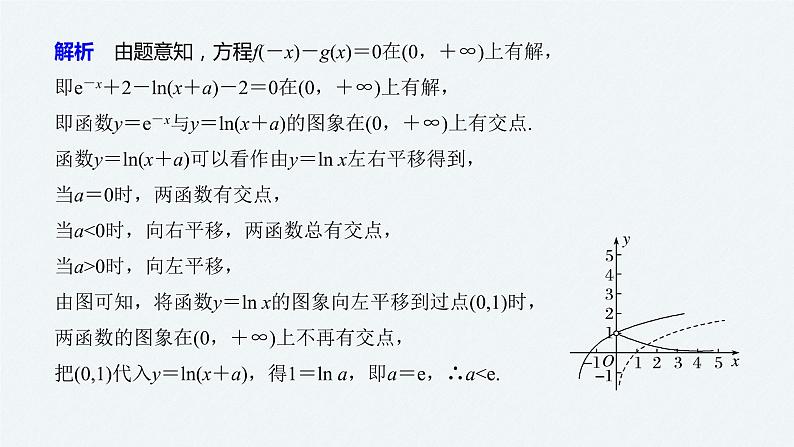 解析　由题意知，方程f(－x)－g(x)＝0在(0，＋∞)上有解，
即e⁻ˣ＋2－ln(x＋a)－2＝0在(0，＋∞)上有解，
即函数y＝e⁻ˣ与y＝ln(x＋a)的图象在(0，＋∞)上有交点.
函数y＝ln(x＋a)可以看作由y＝ln x左右平移得到，
当a＝0时，两函数有交点，
当a<0时，向右平移，两函数总有交点，
当a>0时，向左平移，
由图可知，将函数y＝ln x的图象向左平移到过点(0,1)时，
两函数的图象在(0，＋∞)上不再有交点，
把(0,1)代入y＝ln(x＋a)，得1＝ln a，即a＝e，∴a<e.
y
5
4
3
2
1
－1 O 1 2 3 4 5 x
－1